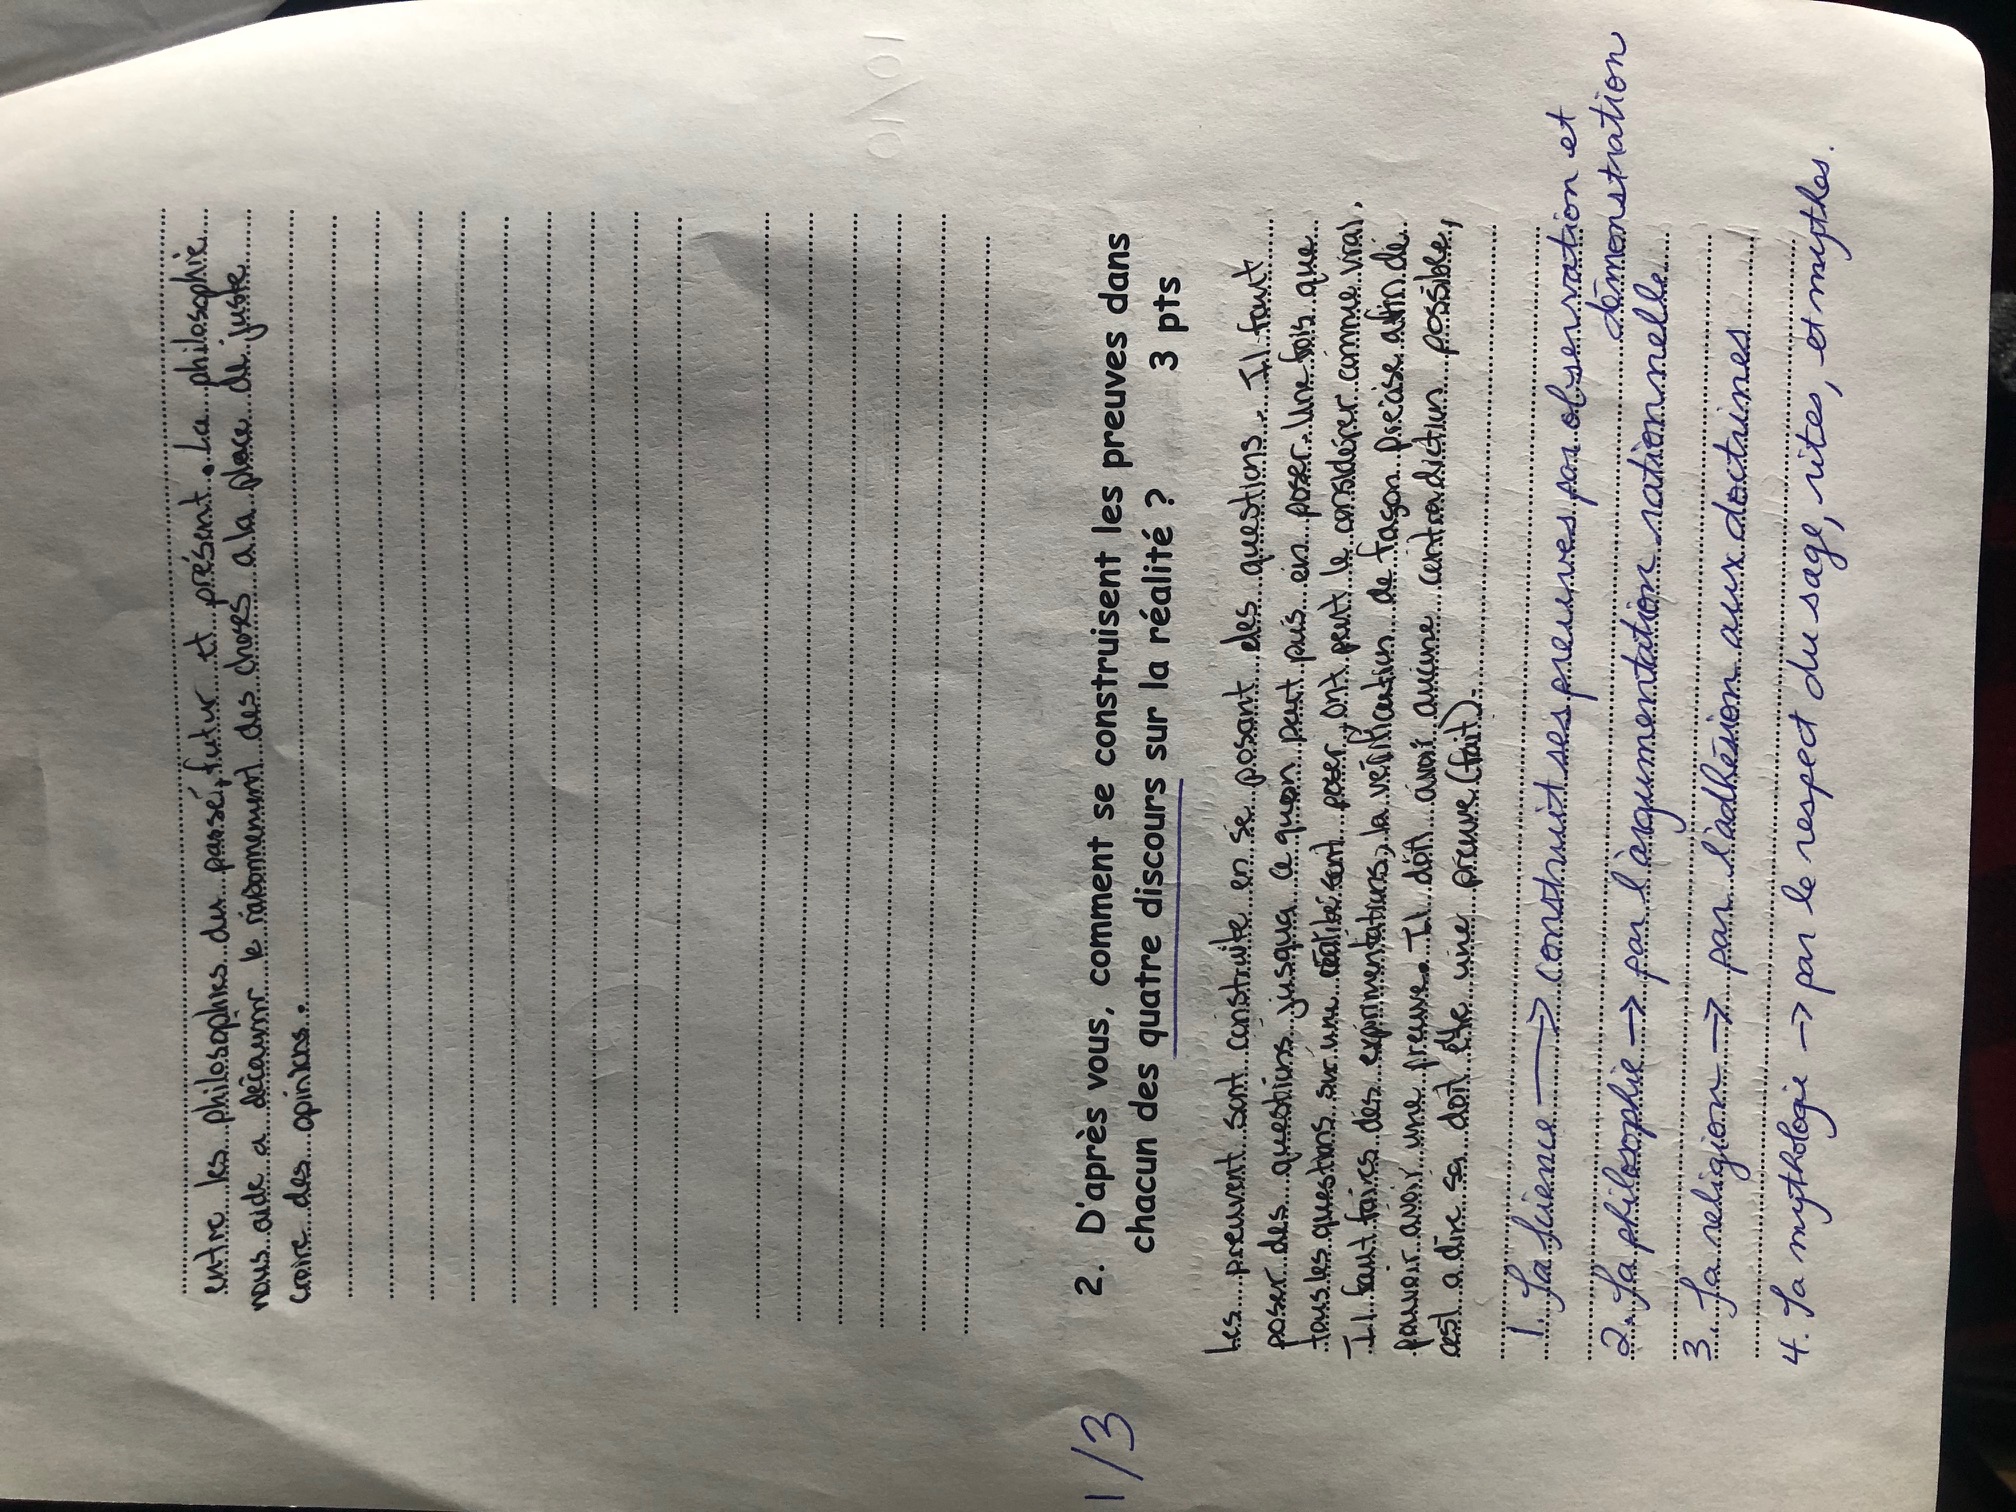 entre les philosophies du passé, futur et présent. La philosophie
nous aide a découvrir le raisonnement des choses a la place de juste
croire des opinions.
2. D'après vous, comment se construisent les preuves dans
chacun des quatre discours sur la réalité ? 3 pts
1/3
Les preuvent sont construite en se posant des questions. Il faut
poser des questions jusqua ce quon peut pas en poser. Une fois que
tous les questions sur une réalité sont poser, ont peut le considérer comme vrai.
Il faut faires des expirimentations, la vérification de façon précise afin de
pouvoir avoir une preuve. Il doit avoir aucune contradiction possible,
cest a dire sa doit être une preuve (fait).
1. La science → construit ses preuves par observation et
démonstration
2. La philosophie → par l'argumentation rationnelle
3. La religion → par l'adhésion aux doctrines
4. La mythologie → par le respect du sage, rites, et mythos.